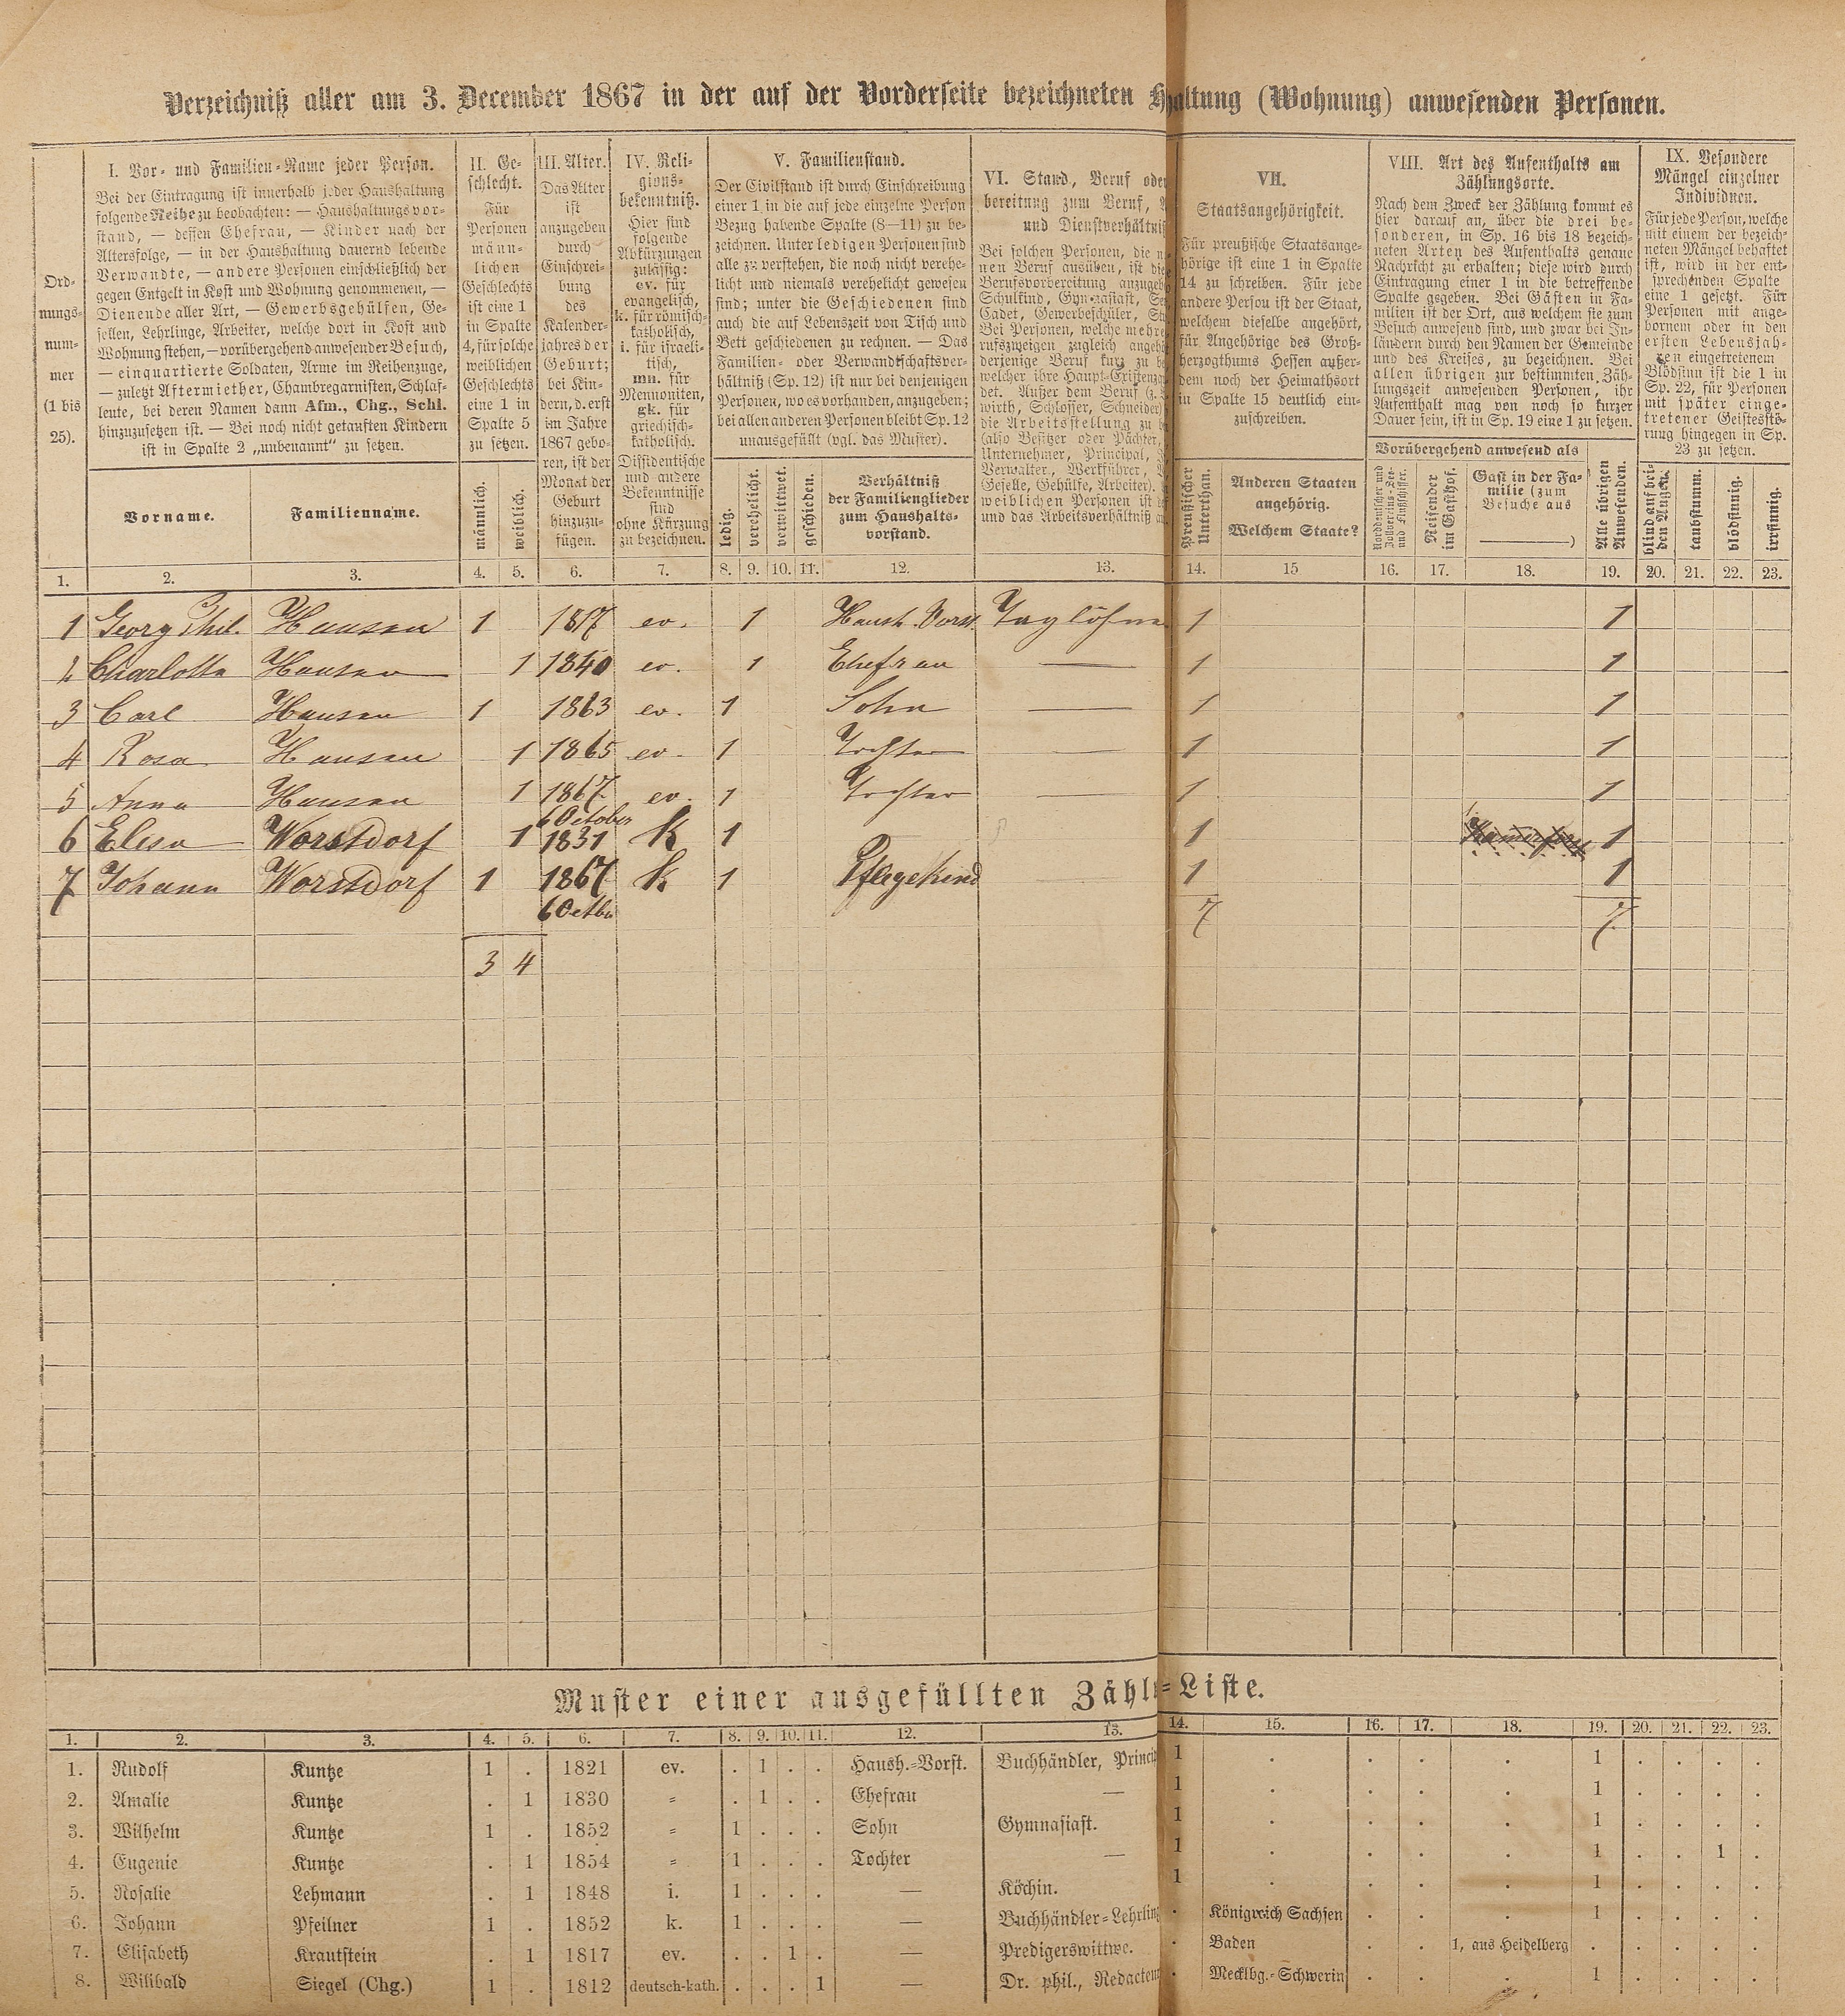 Verzeichniß aller am 3. December 1867 in der auf der Vorderseite bezeichneten H altung (Wohnung) anwesenden Personen.
Ord-
nungs-
num-
mer
(1 bis
25).
I. Vor- und Familien-Name jeder Person.
Bei der Eintragung ist innerhalb jeder Haushaltung
folgende Reihe zu beobachten: — Haushaltungsvor-
stand, — dessen Ehefrau, — Kinder nach der
Altersfolge, — in der Haushaltung dauernd lebende
Verwandte, — andere Personen einschließlich der
gegen Entgelt in Kost und Wohnung genommenen, —
Dienende aller Art, — Gewerbsgehülfen, Ge-
sellen, Lehrlinge, Arbeiter, welche dort in Kost und
Wohnung stehen, — vorübergehend anwesender Besuch,
— einquartierte Soldaten, Arme im Reihenzuge,
— zuletzt Aftermiether, Chambregarnisten, Schlaf-
leute, bei deren Namen dann Afm., Chg., Schl.
hinzuzusetzen ist. — Bei noch nicht getauften Kindern
ist in Spalte 2 „unbenannt“ zu setzen.
Vorname.
Familienname.
II. Ge-
schlecht.
Für
Personen
männ-
lichen
Geschlechts
ist eine 1
in Spalte
4, für solche
weiblichen
Geschlechts
eine 1 in
Spalte 5
zu setzen.
männlich.
weiblich.
III. Alter.
Das Alter
ist
anzugeben
durch
Einschrei-
bung
des
Kalender-
jahres der
Geburt;
bei Kin-
dern, d. erst
im Jahre
1867 gebo-
ren, ist der
Monat der
Geburt
hinzuzu-
fügen.
IV. Reli-
gions-
bekenntniß.
Hier sind
folgende
Abkürzungen
zulässig:
ev. für
evangelisch,
k. für römisch-
katholisch,
i. für israeli-
tisch,
mn. für
Mennoniten,
gk. für
griechisch-
katholisch.
Dissidentische
und andere
Bekenntnisse
sind
ohne Kürzung
zu bezeichnen.
V. Familienstand.
Der Civilstand ist durch Einschreibung
einer 1 in die auf jede einzelne Person
Bezug habende Spalte (8—11) zu be-
zeichnen. Unter ledigen Personen sind
alle zu verstehen, die noch nicht verehe-
licht und niemals verehelicht gewesen
sind; unter die Geschiedenen sind
auch die auf Lebenszeit von Tisch und
Bett geschiedenen zu rechnen. — Das
Familien- oder Verwandtschaftsver-
hältniß (Sp. 12) ist nur bei denjenigen
Personen, wo es vorhanden, anzugeben;
bei allen anderen Personen bleibt Sp. 12
unausgefüllt (vgl. das Muster).
ledig.
verehelicht.
verwittwet.
geschieden.
Verhältniß
der Familienglieder
zum Haushalts-
vorstand.
VI. Stand, Beruf oder
bereitung zum Beruf,
und Dienstverhältniß
Bei solchen Personen, die
nen Beruf ausüben, ist die
Berufsvorbereitung anzugeb
Schulkind, Gymnasiast,
Cadet, Gewerbeschüler,
Bei Personen, welche mehre
rufszweigen zugleich angehö
derjenige Beruf kurz zu
welcher ihre Haupt-Existenz
det. Außer dem Beruf (z.
wirth, Schlosser, Schneider)
die Arbeitsstellung zu
(also Besitzer oder Pächter,
Unternehmer, Principal,
Verwalter, Werkführer,
Geselle, Gehülfe, Arbeiter).
weiblichen Personen ist
und das Arbeitsverhältniß
VII.
Staatsangehörigkeit.
Für preußische Staatsange-
hörige ist eine 1 in Spalte
14 zu schreiben. Für jede
andere Person ist der Staat,
welchem dieselbe angehört,
für Angehörige des Groß-
herzogthums Hessen außer-
dem noch der Heimathsort
in Spalte 15 deutlich ein-
zuschreiben.
Preußischer
Unterthan.
Anderen Staaten
angehörig.
Welchem Staate?
VIII. Art des Aufenthalts am
Zählungsorte.
Nach dem Zweck der Zählung kommt es
hier darauf an, über die drei be-
sonderen, in Sp. 16 bis 18 bezeich-
neten Arten des Aufenthalts genaue
Nachricht zu erhalten; diese wird durch
Eintragung einer 1 in die betreffende
Spalte gegeben. Bei Gästen in Fa-
milien ist der Ort, aus welchem sie zum
Besuch anwesend sind, und zwar bei In-
ländern durch den Namen der Gemeinde
und des Kreises, zu bezeichnen. Bei
allen übrigen zur bestimmten Zäh-
lungszeit anwesenden Personen, ihr
Aufenthalt mag von noch so kurzer
Dauer sein, ist in Sp. 19 eine 1 zu setzen.
Vorübergehend anwesend als
Norddeutscher und
Zollvereins-See-
und Flußschiffer.
Reisender
im Gasthof.
Gast in der Fa-
milie (zum
Besuche aus
———)
Alle übrigen
Anwesenden.
IX. Besondere
Mängel einzelner
Individuen.
Für jede Person, welche
mit einem der bezeich-
neten Mängel behaftet
ist, wird in der ent-
sprechenden Spalte
eine 1 gesetzt. Für
Personen mit ange-
bornem oder in den
ersten Lebensjah-
ren eingetretenem
Blödsinn ist die 1 in
Sp. 22, für Personen
mit später einge-
tretener Geistesstö-
rung hingegen in Sp.
23 zu setzen.
blind auf bei-
den Augen.
taubstumm.
blödsinnig.
irrsinnig.
1. 2. 3. 4. 5. 6. 7. 8. 9. 10. 11. 12. 13. 14. 15 16. 17. 18. 19. 20. 21. 22. 23.
1 Georg Phil. Hansen 1 1817 ev. 1 Haush. Vorst. Taglöhne 1 1
2 Charlotte Hansen 1 1840 ev. 1 Ehefrau — 1 1
3 Carl Hansen 1 1863 ev. 1 Sohn — 1 1
4 Rosa Hansen 1 1865 ev. 1 Tochter — 1 1
5 Anna Hansen 1 1867 6 October ev. 1 Tochter — 1 1
6 Elisa Worstdorf 1 1831 K 1 1 1
7 Johann Worstdorf 1 1867 6 Octbr K 1 Pflegekind 1 1
7 7
3 4
Muster einer ausgefüllten Zähl-Liste.
1. 2. 3. 4. 5. 6. 7. 8. 9. 10. 11. 12. 13. 14. 15. 16. 17. 18. 19. 20. 21. 22. 23.
1. Rudolf Kuntze 1 . 1821 ev. . 1 . . Haush.-Vorst. Buchhändler, Princip 1 . . . . 1 . . . .
2. Amalie Kuntze . 1 1830 = . 1 . . Ehefrau — 1 . . . . 1 . . . .
3. Wilhelm Kuntze 1 . 1852 = 1 . . . Sohn Gymnasiast. 1 . . . . 1 . . . .
4. Eugenie Kuntze . 1 1854 = 1 . . . Tochter — 1 . . . . 1 . . 1 .
5. Rosalie Lehmann . 1 1848 i. 1 . . . — Köchin. 1 . . . . 1 . . . .
6. Johann Pfeilner 1 . 1852 k. 1 . . . — Buchhändler-Lehrling . Königreich Sachsen . . . 1 . . . .
7. Elisabeth Krautstein . 1 1817 ev. . . 1 . — Predigerswittwe. . Baden . . 1, aus Heidelberg . . . . .
8. Wilibald Siegel (Chg.) 1 . 1812 deutsch-kath. . . . 1 — Dr. phil., Redacteur . Mecklbg.-Schwerin . . . 1 . . . .